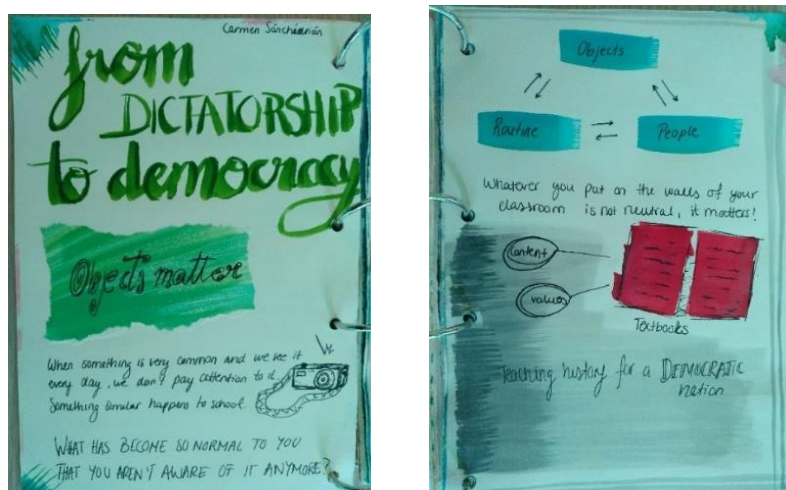 Carmen Sánchidrián
from
DICTATORSHIP
to democracy
Objects matter
When something is very common and we see it
every day, we don't pay attention to it.
Something similar happens to school.
WHAT HAS BECOME SO NORMAL TO YOU
THAT YOU AREN'T AWARE OF IT ANYMORE?
Objects
Routine
People
Whatever you put on the walls of your
classroom is not neutral, it matters!
Content
values
Textbooks
Teaching history for a DEMOCRATIC
nation